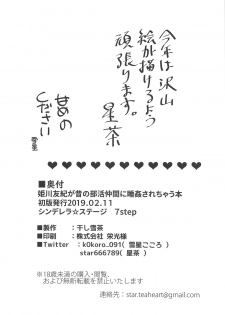 今年は沢山
絵が描けるよう
頑張ります。
星茶
■奥付
姫川友紀が昔の部活仲間に睡姦されちゃう本
初版発行2019.02.11
シンデレラ☆ステージ　7step
■製作　：干し雪茶
■印刷　：株式会社 栄光様
■Twitter　：k0koro_091( 雪星こころ )
star666789( 星茶 )
※18歳未満の購入・閲覧、
および無断転載を禁止いたします
連絡先：star.teaheart@gmail.com